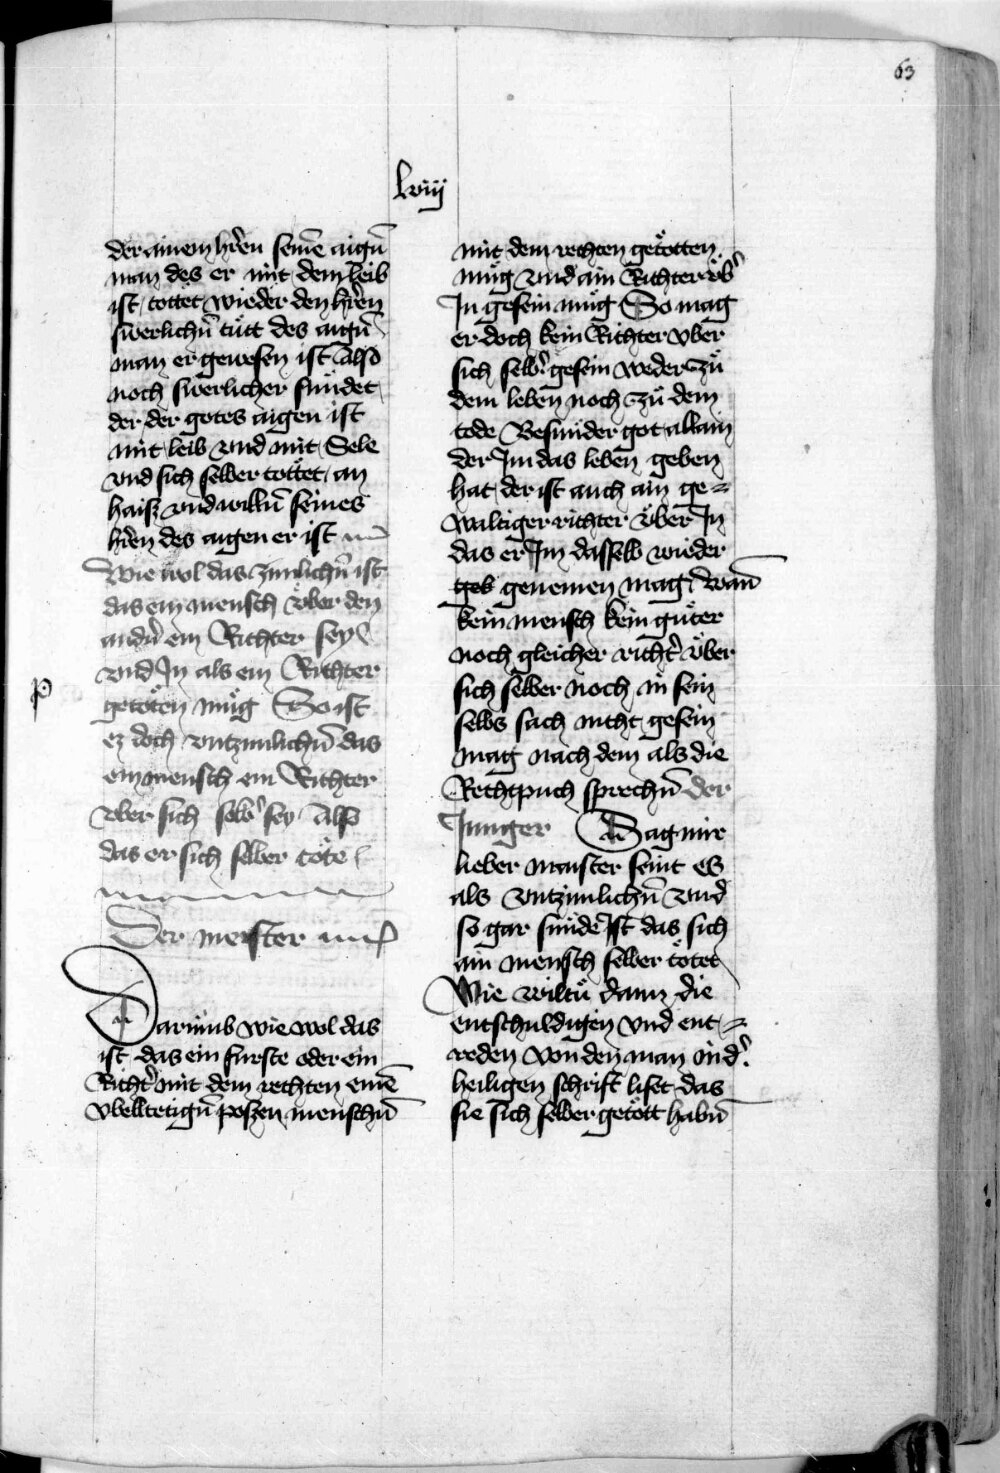 63
lviij
der ainem hr̄en seinē aigñ
man des er mit dem leib
ist / tottet wieder den hr̄en
swerlichñ tůtt des aigñ
man er gewesen ist Also
noch swerlicher sundet
der der gotes aigen ist
mit leib vnd mit Sele
vnd sich selber tottet / an
haisz vnd willñ seines
hr̄en des aigen er ist
Wie wol das zimlichñ ist
das ein mensch v̈ber den
andñ ein Richter sey
vnd In als ein Richter
getöten mug So ist
p
ez doch vntzimlichñ das
ein mensch ein Richter
vber sich selb' sey Alsz
das er sich selber töte
Der meister
Darumb wie wol das
ist das ein furste oder ein
Richt' mit dem rechten einē
vbelltetigñ poszen menschñ
mit dem rechten getötten
mug vnd ain Richter v̈b'
In gesein mug So mag
er doch kein Richter vber
sich selb' gesein weder zů
dem leben noch zů dem
tode Besunder got allain
der Im das leben geben
hat der ist auch ain ge=
waltiger richter v̈ber In
das er Im dasselb wieder
geb genemen mag wañ
kein mensch kein gůter
noch gleicher richt' v̈ber
sich selber noch in sein
selbs sach nicht gesein
mag nach dem als die
Rechtpuch sprechñ der
Junger Sag mir
lieber maister seint es
als vntzimlichñ vnd
so gar sunde Ist das sich
ain mensch selber tötet
Wie wiltu dann die
entschuldigen vnd ent=
reden von den man in d'
heiligen schrift liset das
sie sich selber getött habñ